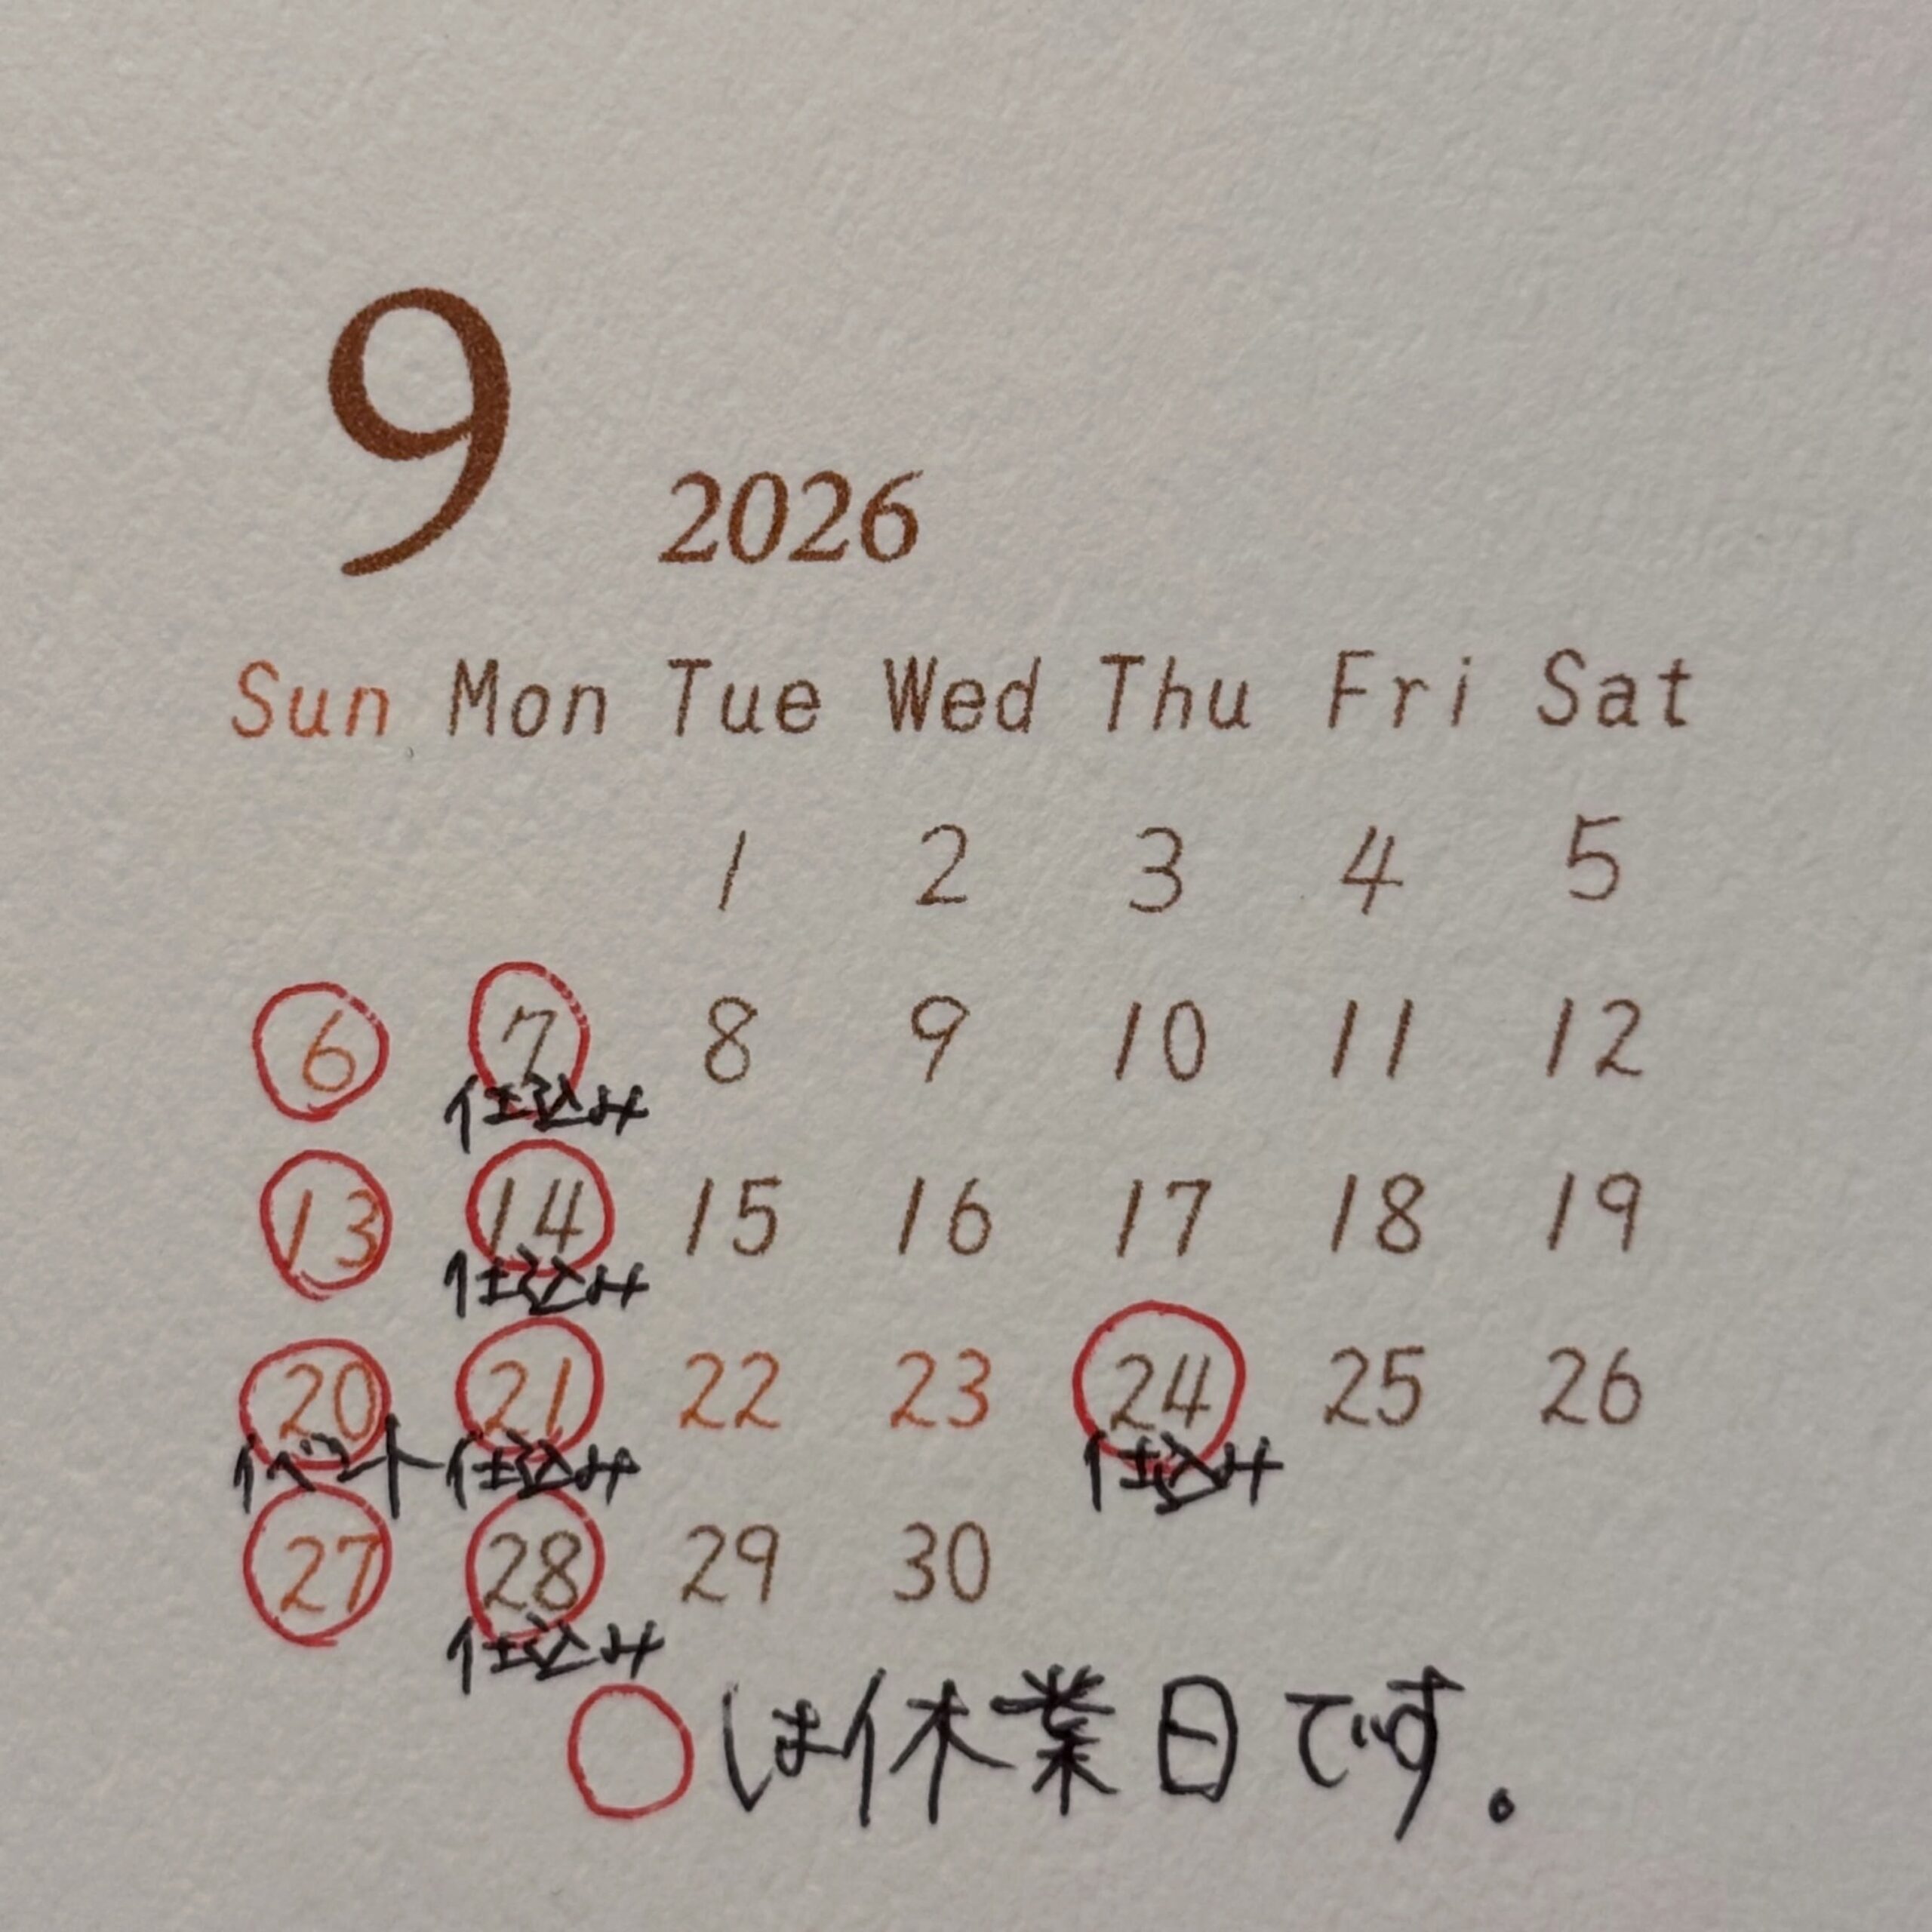 9 2026
Sun Mon Tue Wed Thu Fri Sat
1 2 3 4 5
6 7 8 9 10 11 12
仕込み
13 14 15 16 17 18 19
仕込み
20 21 22 23 24 25 26
イベント 仕込み 仕込み
27 28 29 30
仕込み
○は休業日です。